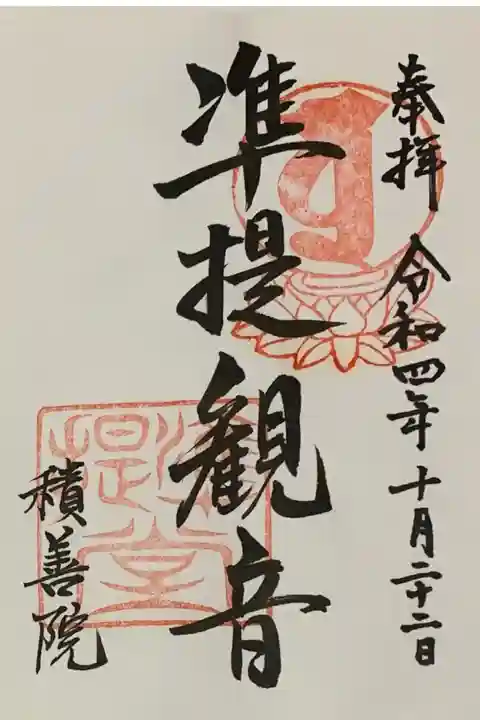 奉拝 令和四年十月二十二日
准提観音
積善院
准提堂